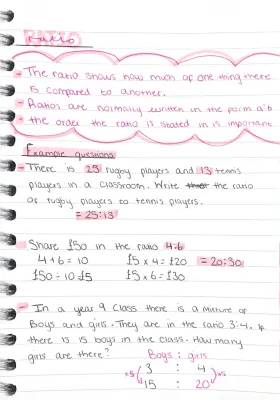 Ratio
- The ratio shows how much of one thing there
is compared to another.
- Ratios are normally written in the form a:b
- the order the ratio is stated in is important
Example questions
- There is 25 rugby players and 13 tennis
players in a classroom. Write the ratio
of rugby players to tennis players.
= 25:13
Share £50 in the ratio 4:6
4 + 6 = 10 £5 x 4 = £20 = 20:30
£50 ÷ 10 = £5 £5 x 6 = £30
- In a year 9 class there is a mixture of
Boys and girls. They are in the ratio 3:4. If
there is 15 boys in the class. How many
girls are there?
Boys : girls
x5 3 : 4 x5
15 : 20